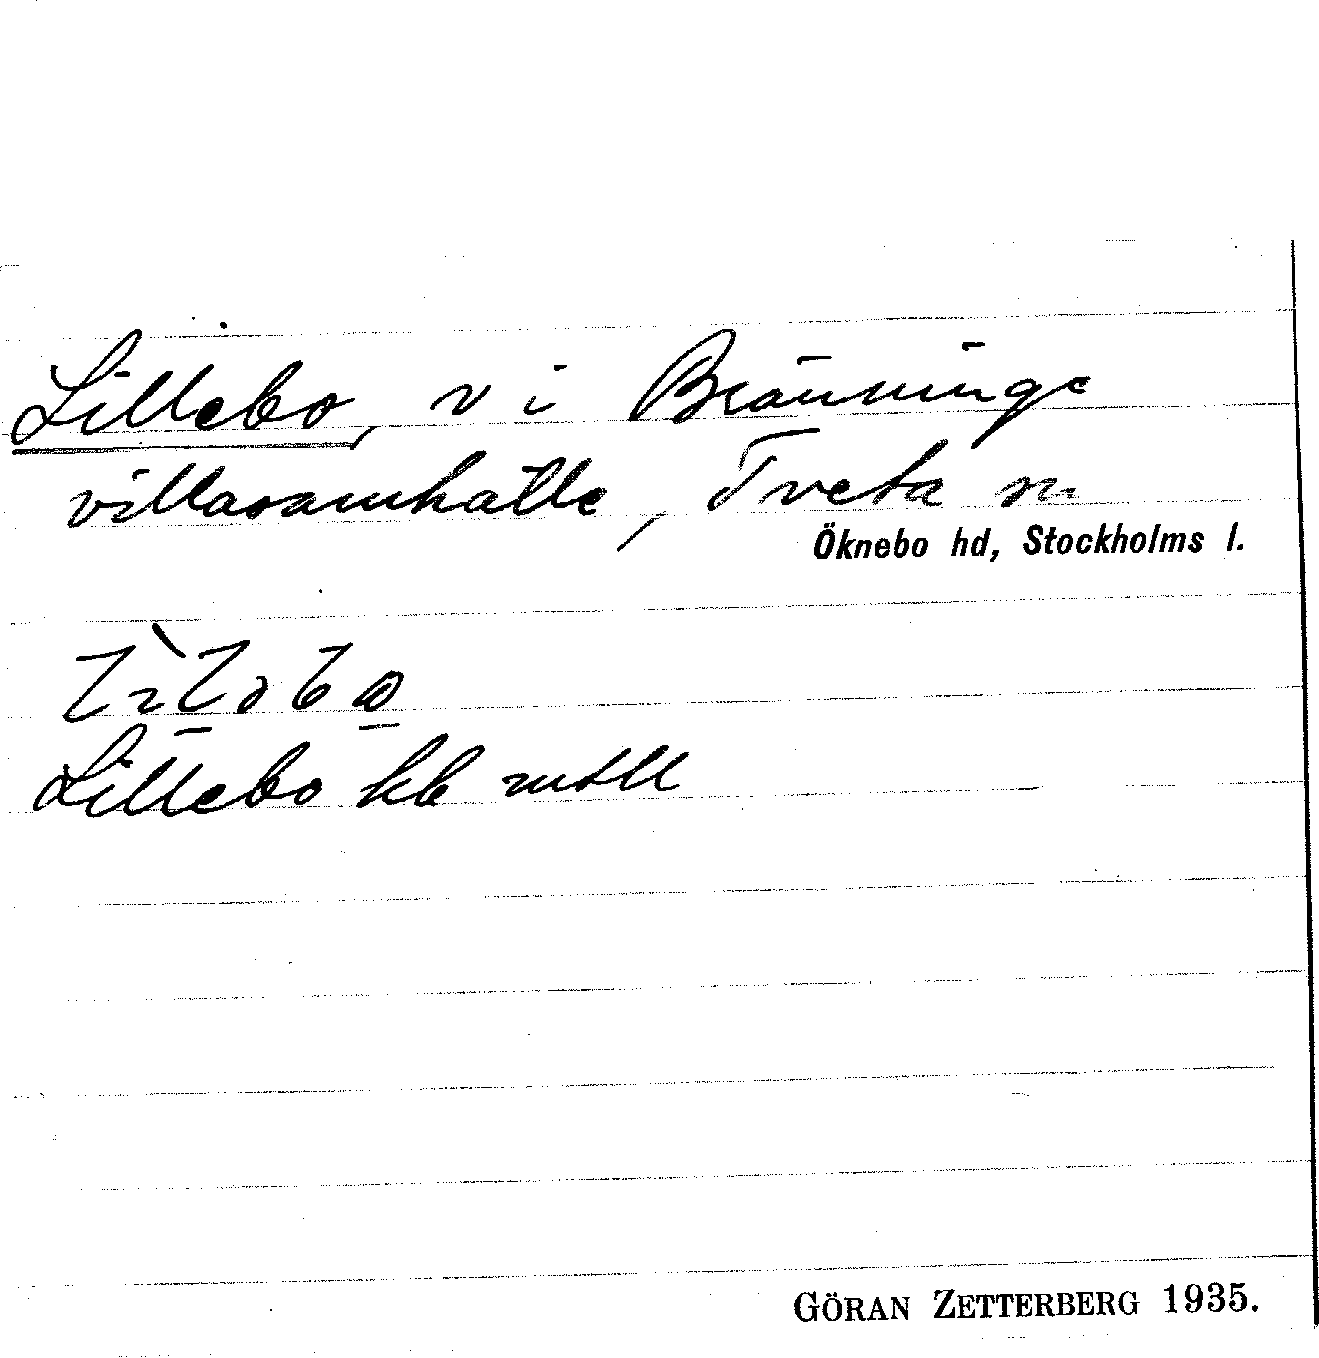 Lillebo, v i Bränninge
villasamhälle, Tveta sn
Öknebo hd, Stockholms l.
Lillebo kb mtll
GÖRAN ZETTERBERG 1935.